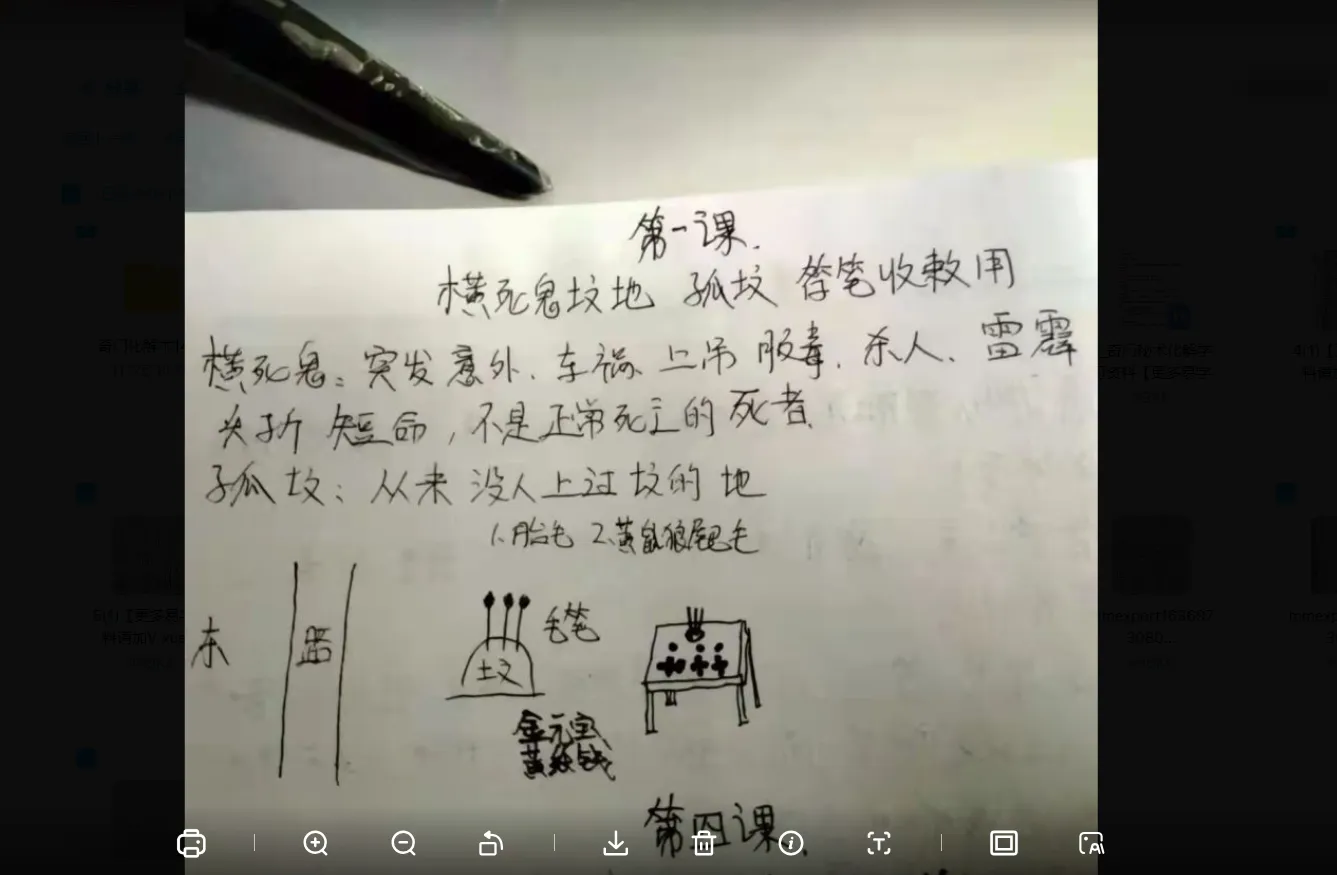 第一课.
横死鬼坟地 孤坟 笔收敕用
横死鬼: 突发意外、车祸 上吊 服毒. 杀人、雷霹
夭折 短命,不是正常死亡的死者
孤坟: 从来没人上过坟的地
1.胎毛 2.黄鼠狼尾巴毛
东 路 土坟 毛笔
金元宝
黄纸钱
第四课.